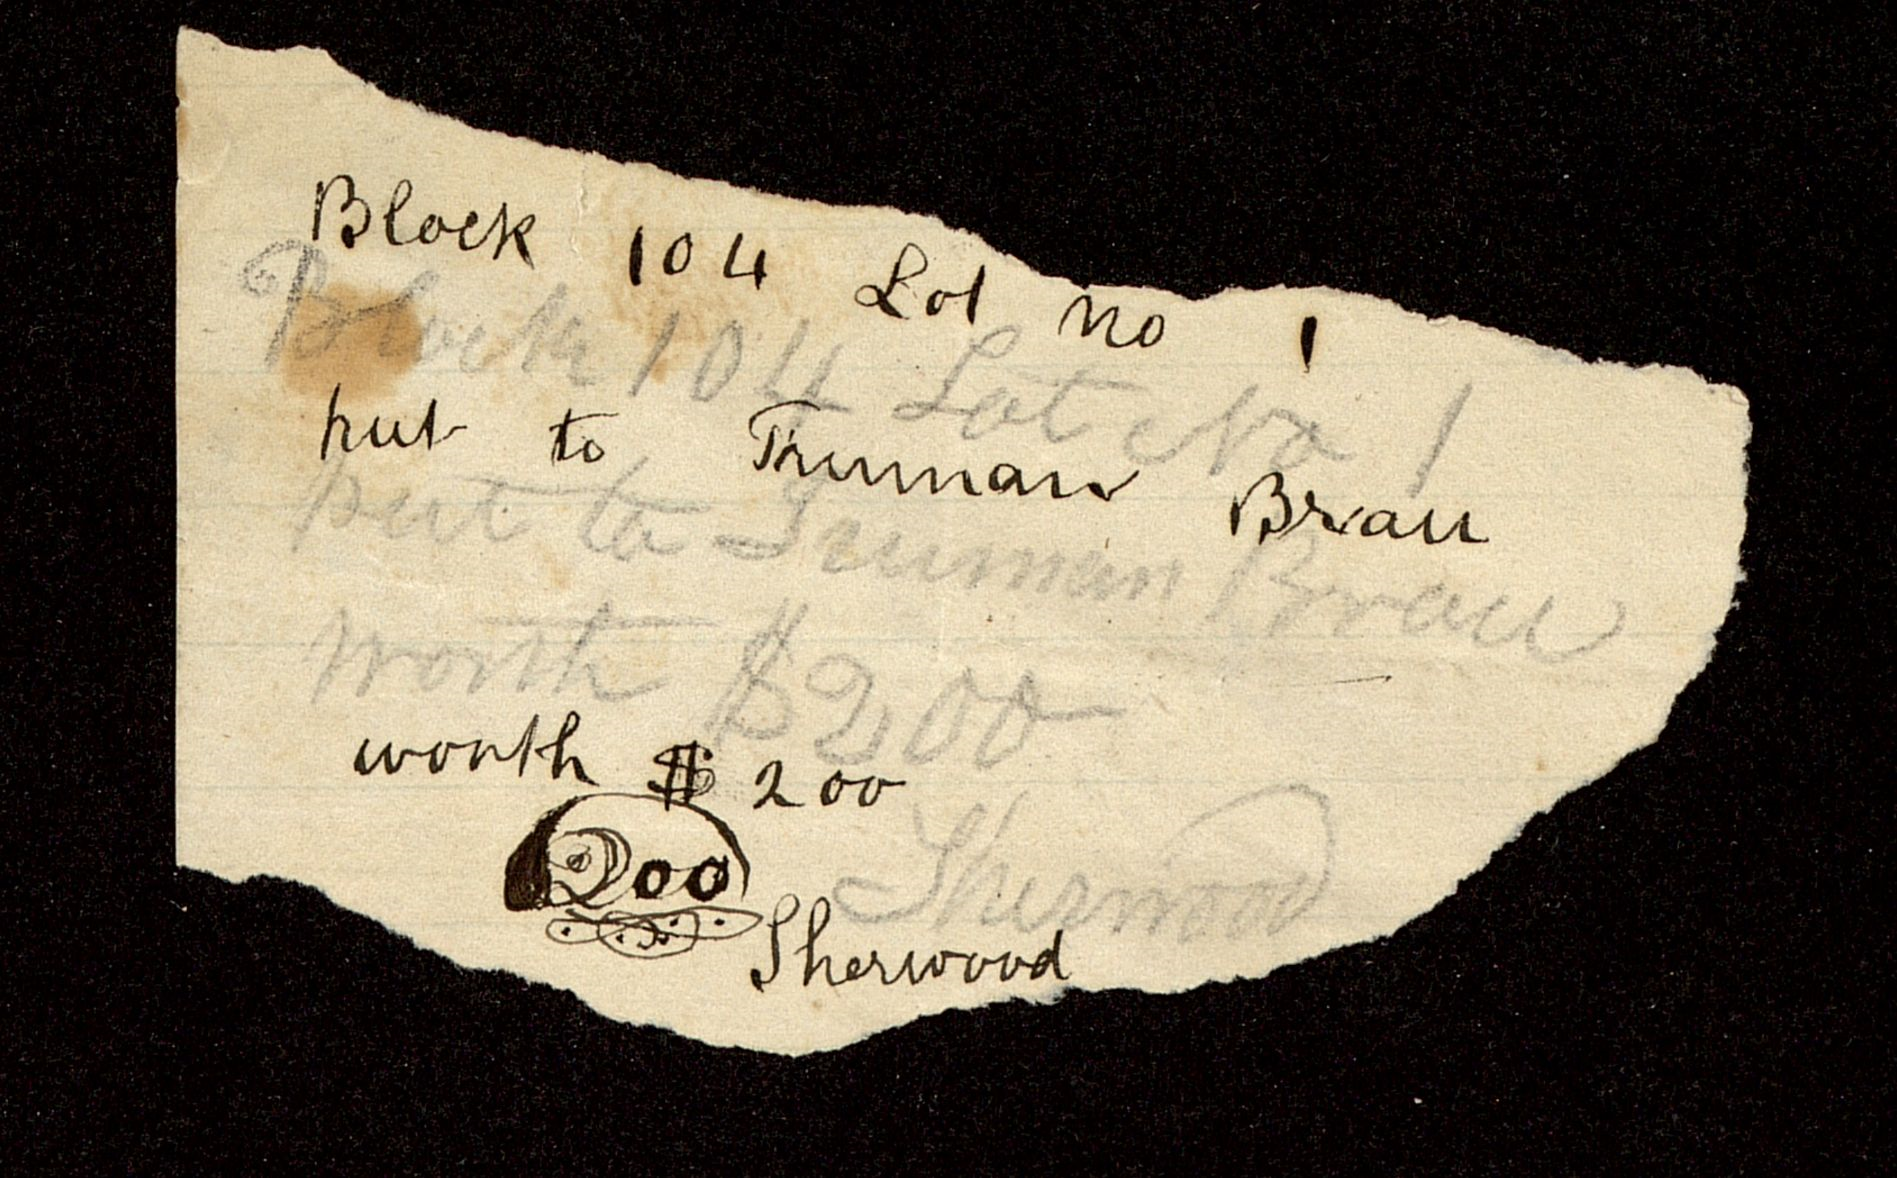 Block 104 Lot no 1
Block 104 Lot No 1
put to Truman Brau
put to Truman Brau
worth $200
worth $200
200
Sherwood
Sherwood